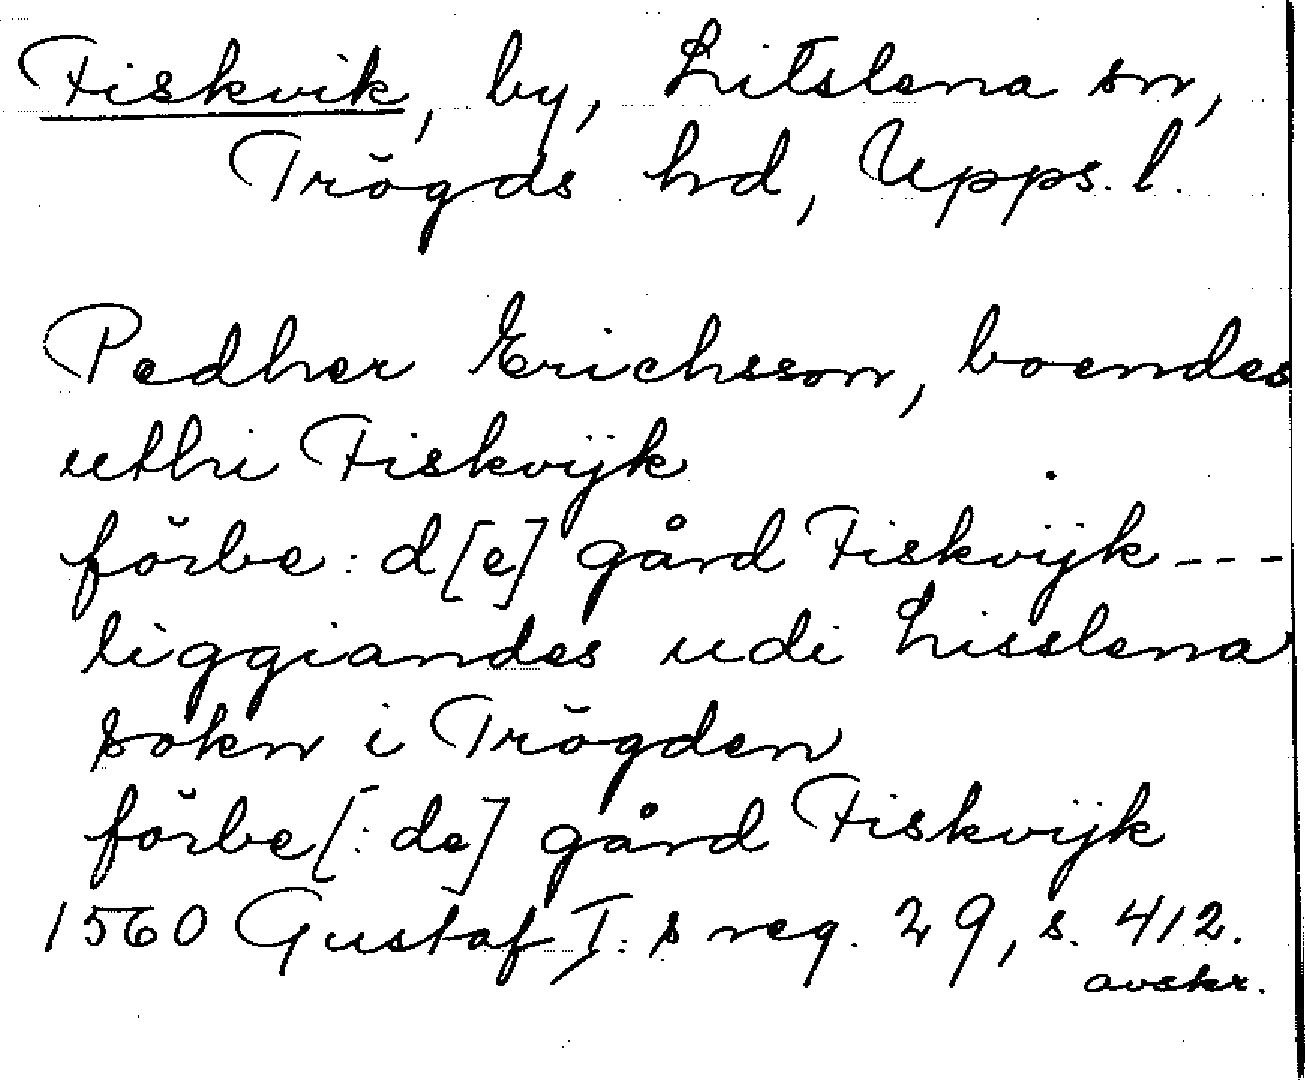 Fiskvik, by, Litslena sn,
Trögds hd, Upps. l.
Pedher Erichsson, boendes
uthi Fiskvijk
förbe: d[e] gård Fiskvijk ---
liggiandes udi Lisslena
sokn i Trögden
förbe[:de] gård Fiskvijk
1560 Gustaf I:s reg. 29, s. 412.
avskr.